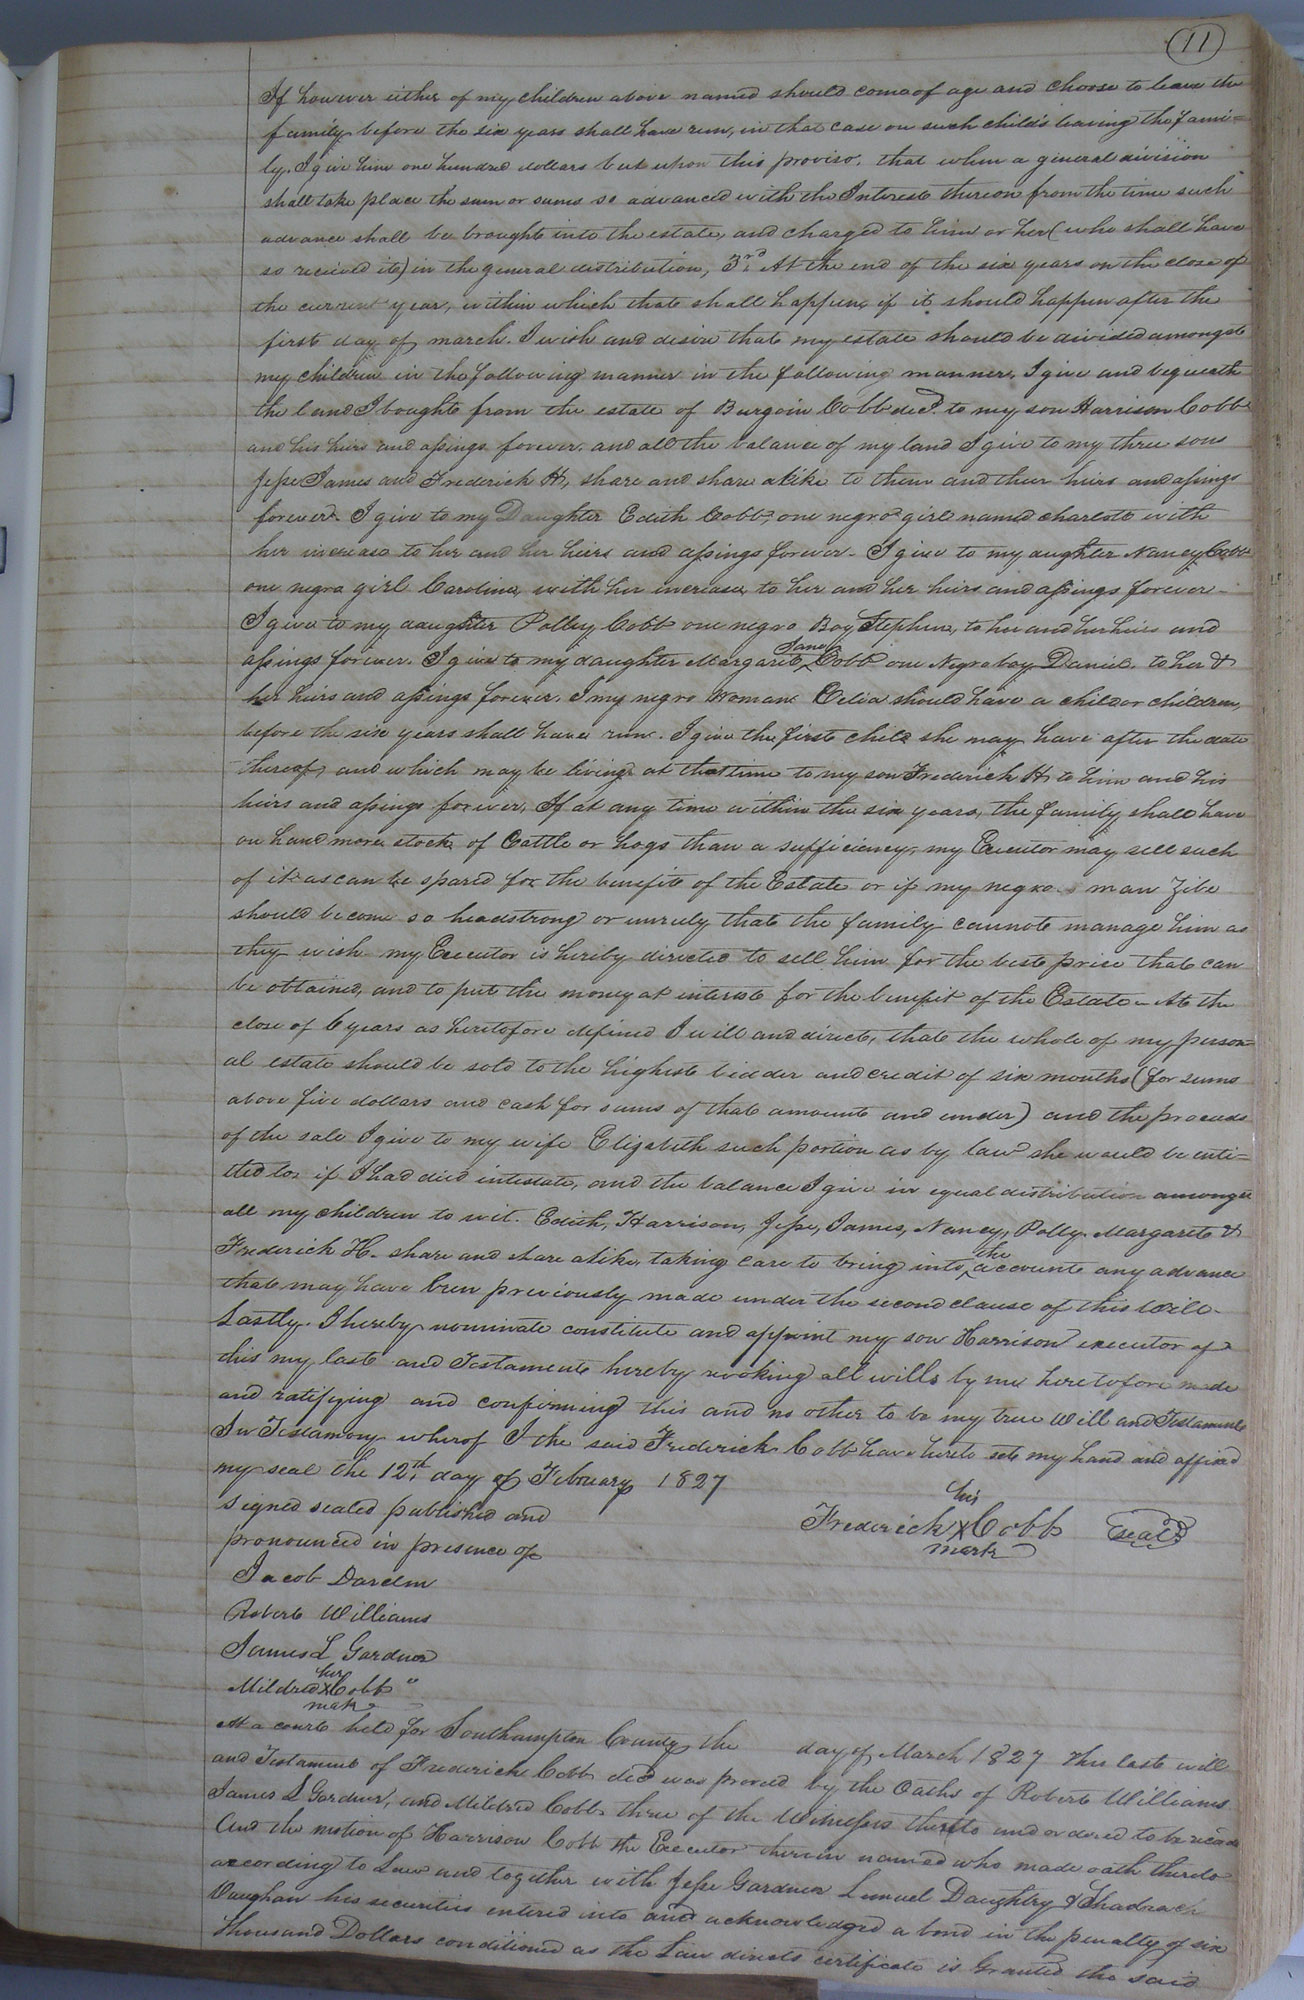 11
If however either of my children above named should come of age and choose to leave the
family before the six years shall have run, in that case on such child's leaving the fami=
ly. I give him one hundred dollars but upon this proviso, that when a general division
shall take place the sum or sums so advanced with the Interest thereon from the time such
advance shall be brought into the estate, and charged to him or her (who shall have
so recieved it) in the general distribution, 3rd At the end of the six years on the close of
the current year, within which that shall happen, if it should happen after the
first day of march. I wish and desire that my estate should be divided amongst
my children in the following manner in the following manner, I give and bequeath
the land I bought from the estate of Burgoin Cobb decd to my son Harrison Cobb
and his heirs and assings forever. and all the balance of my land I give to my three sons
Jesse James and Frederick H, share and share alike to them and their heirs and assings
forever. I give to my Daughter Edith Cobb, one negro girl named charlott with
her increase to her and her heirs and assings forever - I give to my aughter Nancy Cobb
one negro girl Carolina, with her increase, to her and her heirs and assings forever -
I give to my daughter Polley Cobb one negro Boy Stephen, to her and her heirs and
assings forever. I give to my daughter Margaret Jane Cobb one Negro boy Daniel. to her &
her heirs and assings forever. I my negro Woman Celia should have a child or children,
before the six years shall have run. I give the first child she may have after the date
thereof, and which may be living at that time to my son Frederick H, to him and his
heirs and assings forever, If at any time within the six years, the family shall have
on hand more stock of Cattle or hogs than a sufficiency, my Executor may sell such
of it as can be spared for the benefit of the Estate or if my negro man Zibe
should become so headstrong or unruly that the family cannot manage him as
they wish my Executor is hereby directed to sell him for the best price that can
be obtained, and to put the money at interest for the benefit of the Estate - At the
close of 6 years as heretofore defined I will and direct, that the whole of my person=
al estate should be sold to the highest bidder and credit of six months (for sums
above five dollars and cash for sums of that amount and under) and the proceeds
of the sale I give to my wife Elizabeth such portion as by law she would be enti=
tled to, if I had died intestate, and the balance I give in equal distribution amongst
all my children to wit. Edith, Harrison, Jesse, James, Nancy, Polly Margaret &
Frederick H. share and share alike, taking care to bring into the account any advance
that may have been previously made under the second clause of this Will -
Lastly. I hereby nominate constitute and appoint my son Harrison executor of
this my last and Testament hereby revoking all wills by me heretofore made
and ratifying and confirming this and no other to be my true Will and Testament
In Testamony wherof I the said Frederick Cobb have hereto sett my hand and affixed
my seal the 12th day of February 1827
signed sealed published and
pronounced in presence of
his
Frederick X Cobb seal
mark
Jacob Darden
Robert Williams
James L Gardner
her
Mildred X Cobb "
mark
At a court held for Southampton County the day of March 1827 This last will
and Testament of Frederick Cobb decd was proved by the Oaths of Robert Williams
James L Gardner, and Mildred Cobb three of the Witnesses thereto and ordered to be recd
And the motion of Harrison Cobb the Executor therein named who made oath thereto
according to Law and together with Jesse Gardner Lemuel Daughtry & Shadrach
Vaughan his securities entered into and acknowledged a bond in the penalty of six
thousand Dollars conditioned as the Law directs certificate is Granted the said